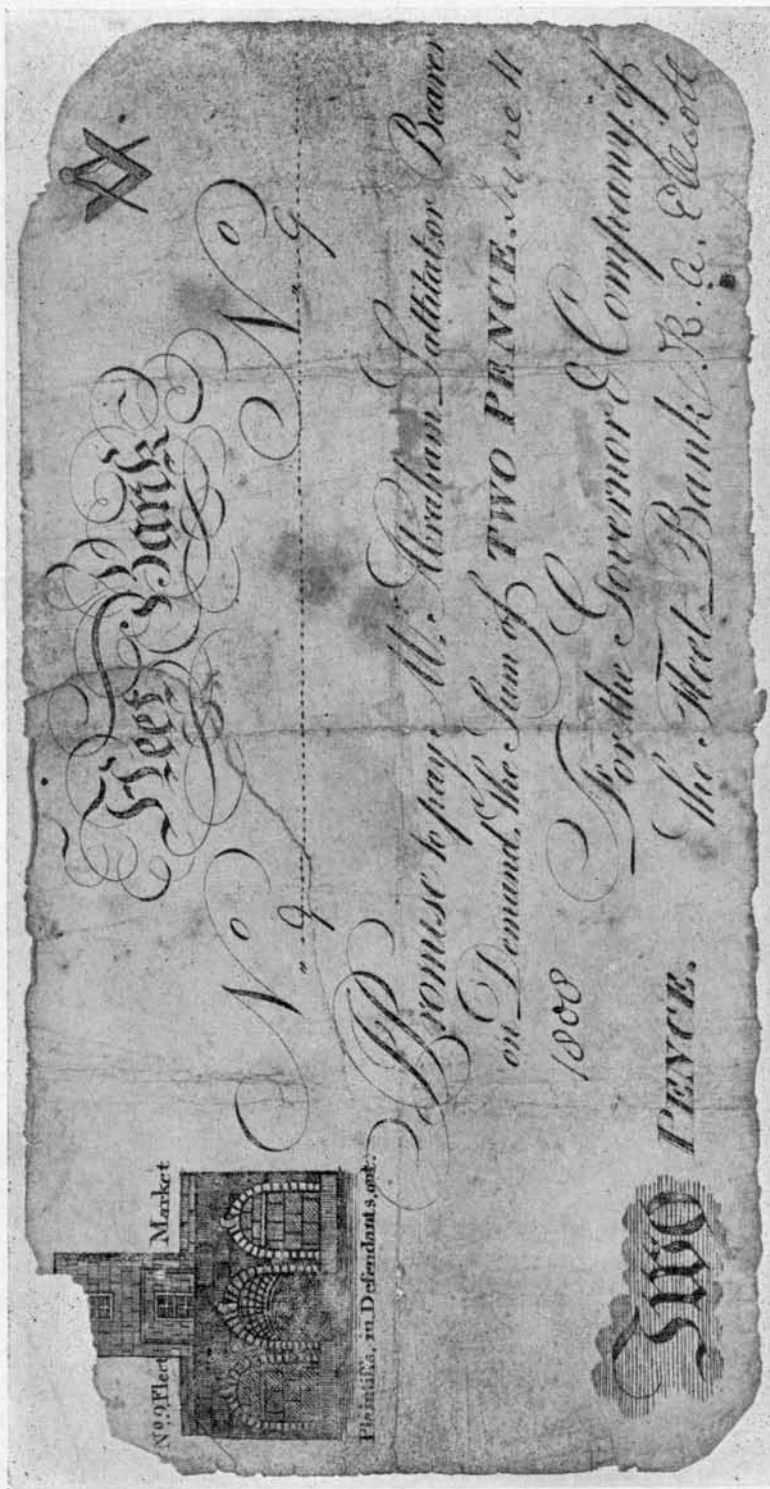 Fleet Bank
No. 9 Fleet Market
Plaintiffs, in Defendants, out.
No 9 No 9
I Promise to pay Mr. Abraham Latitat or Bearer
on Demand, the Sum of TWO PENCE. June 4
1808
For the Governor & Company of
Two PENCE. the Fleet Bank. R. A.